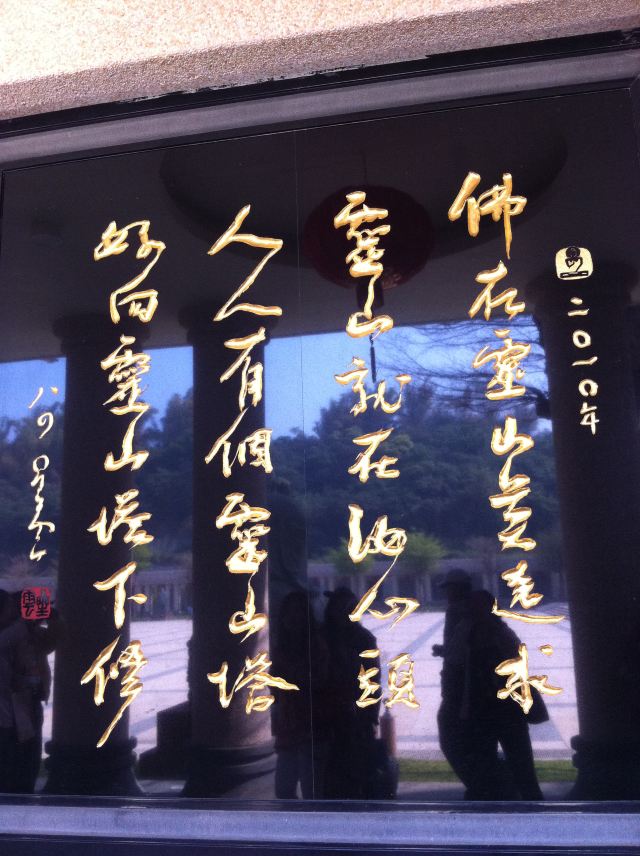 二〇一〇年
佛在靈山莫遠求
靈山就在汝心頭
人人有個靈山塔
好向靈山塔下修
星雲